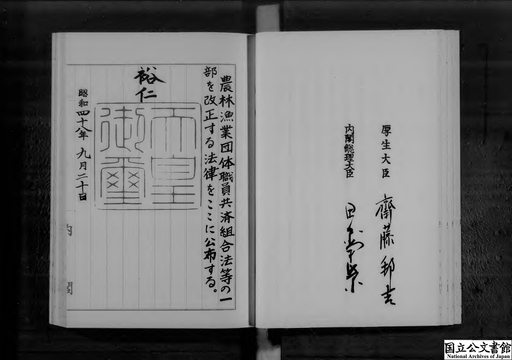 農林漁業団体職員共済組合法等の一
部を改正する法律をここに公布する。
裕仁
天皇
御璽
昭和四十八年九月二十日
内閣
内閣総理大臣
田中角榮
厚生大臣
齋藤邦吉
国立公文書館
National Archives of Japan